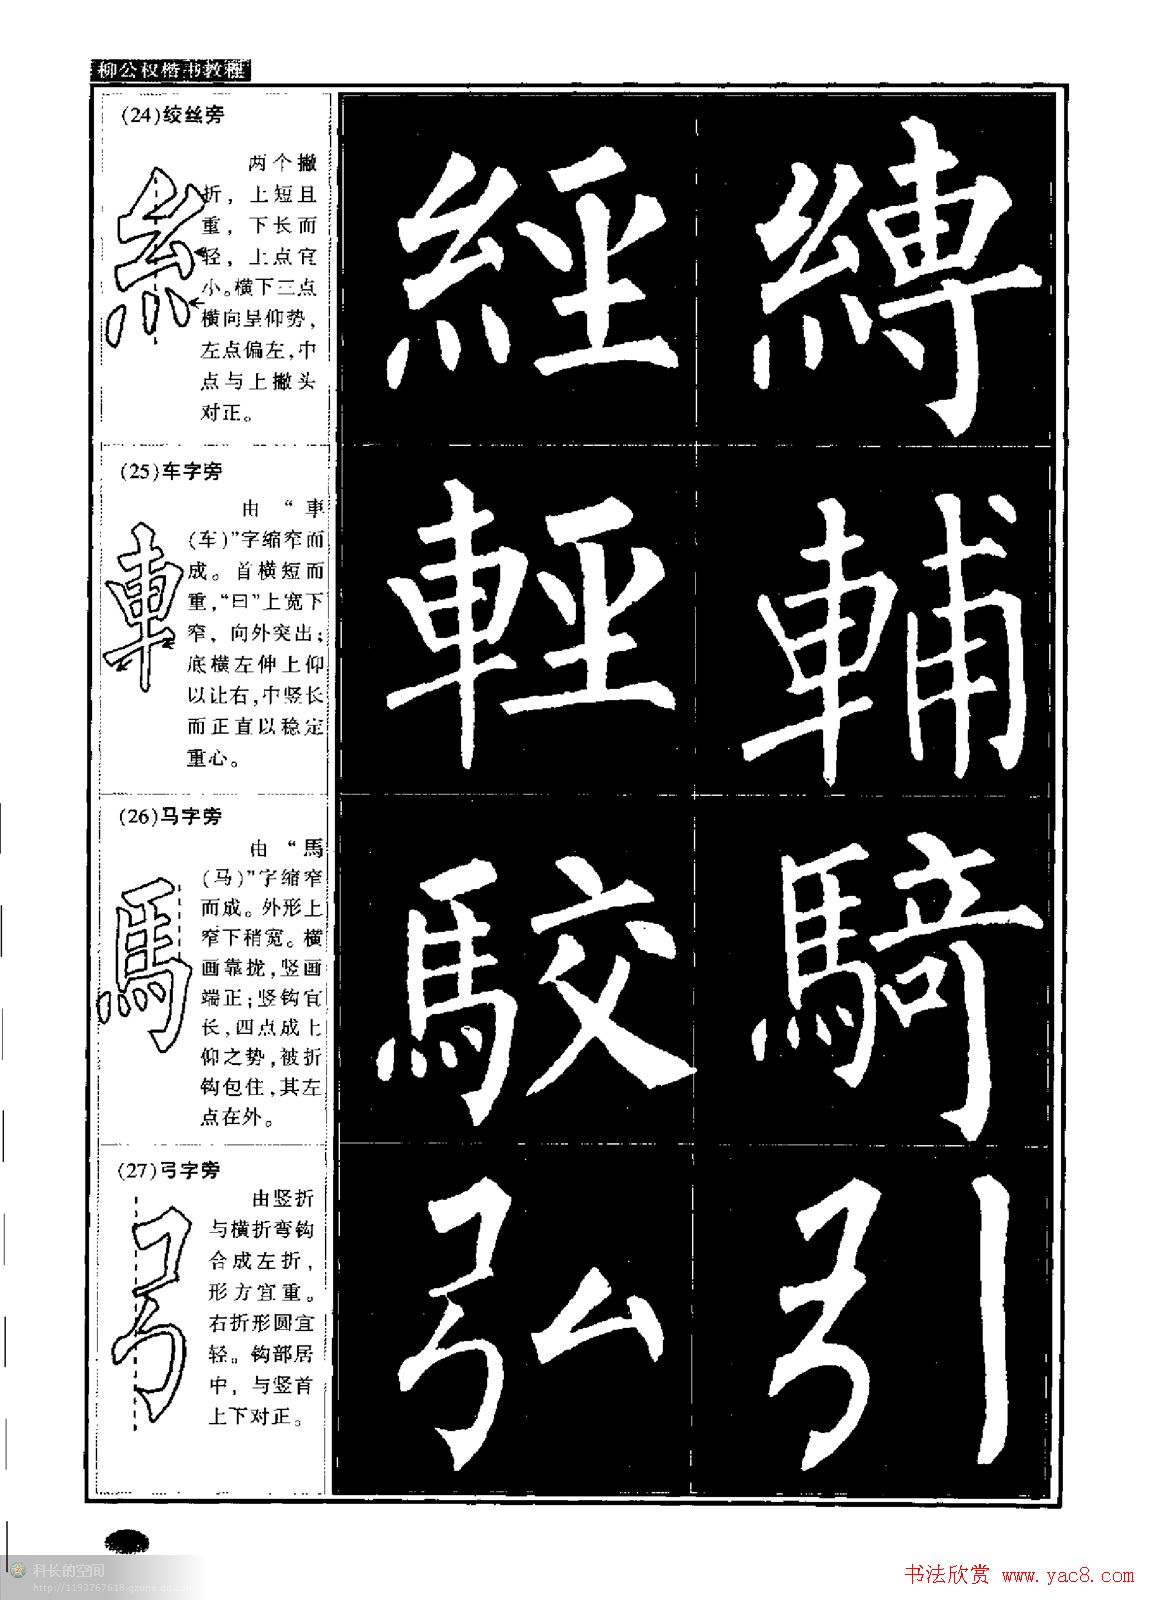 柳公权楷书教程
(24)绞丝旁
两个撇
折，上短且
重，下长而
轻，上点宜
小。横下三点
横向呈仰势，
左点偏左，中
点与上撇头
对正。
糹
經 縛
(25)车字旁
由“車
(车)”字缩窄而
成。首横短而
重，“曰”上宽下
窄，向外突出；
底横左伸上仰
以让右，中竖长
而正直以稳定
重心。
車
輕 輔
(26)马字旁
由“馬
(马)”字缩窄
而成。外形上
窄下稍宽。横
画靠拢，竖画
端正；竖钩宜
长，四点成上
仰之势，被折
钩包住，其左
点在外。
馬
駮 騎
(27)弓字旁
由竖折
与横折弯钩
合成左折，
形方宜重。
右折形圆宜
轻。钩部居
中，与竖首
上下对正。
弓
弘 引
科长的空间
http://1193767618.qzone.qq.com
书法欣赏 www.yac8.com